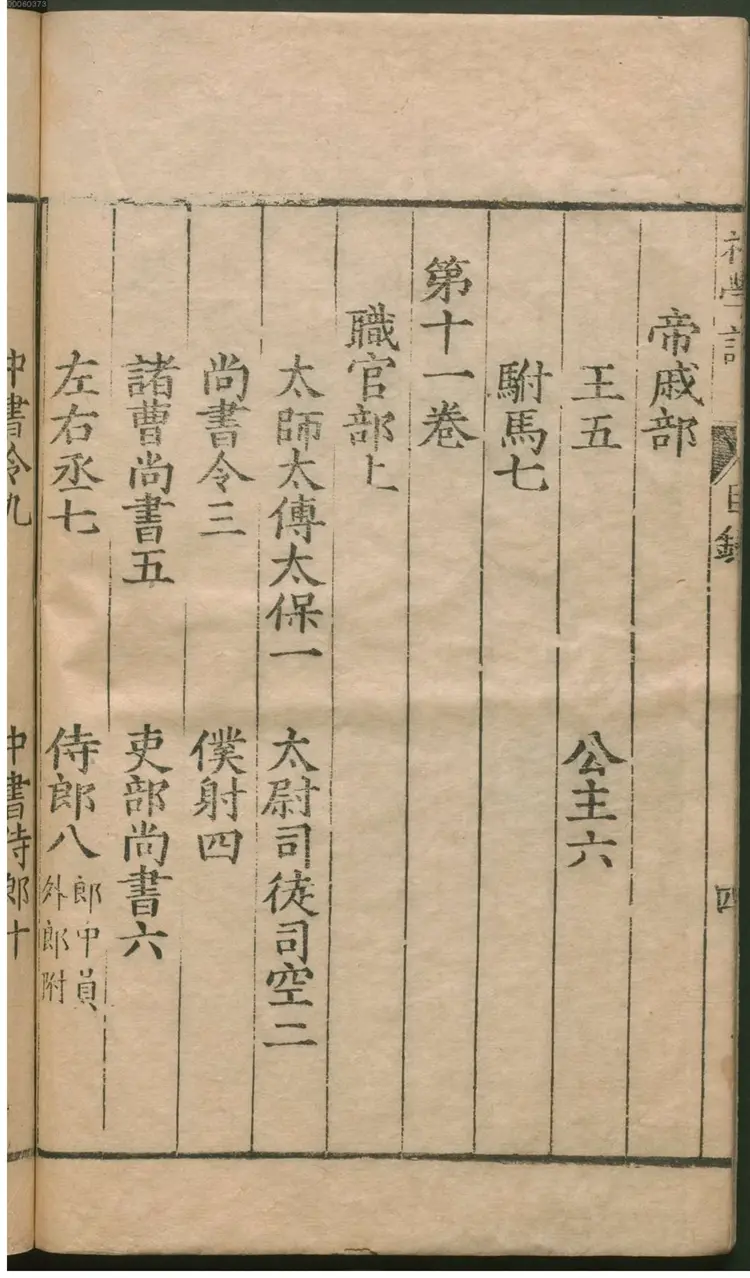 00060373
初學記 目錄 四
帝戚部
王五 公主六
駙馬七
第十一卷
職官部上
太師太傅太保一 太尉司徒司空二
尚書令三 僕射四
諸曹尚書五 吏部尚書六
左右丞七 侍郎八 郎中員外郎附
中書令九 中書侍郎十